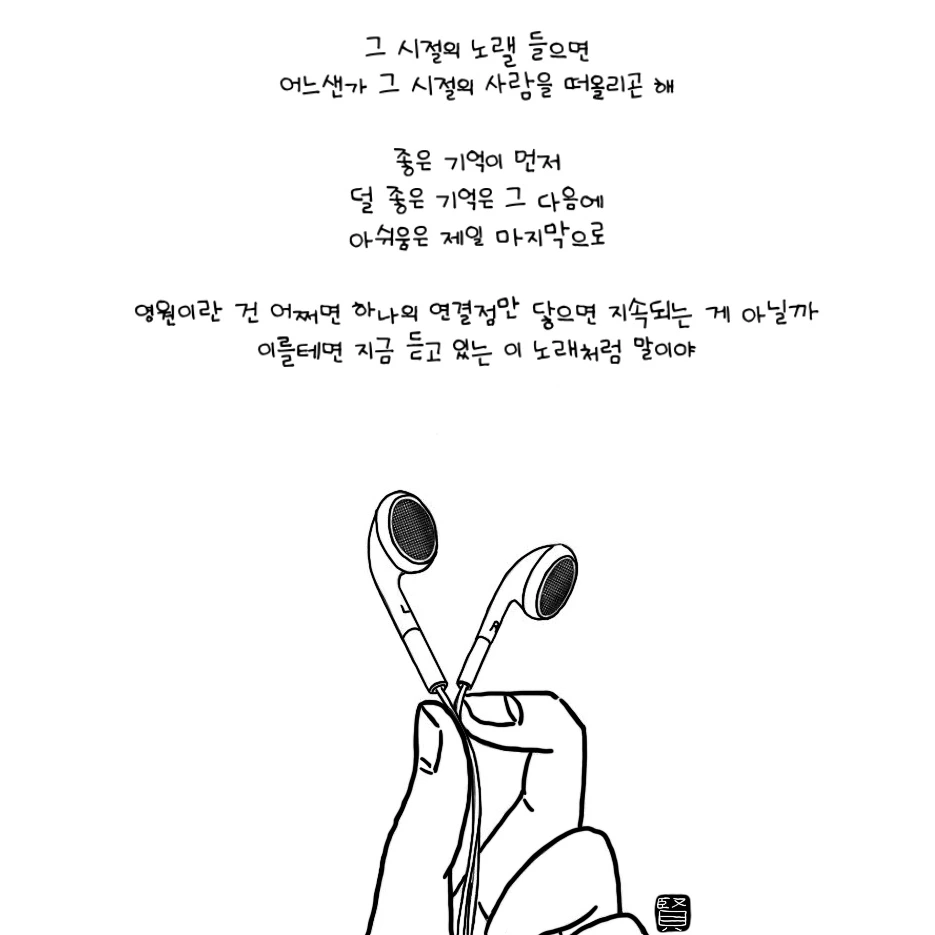 그 시절의 노랠 들으면
어느샌가 그 시절의 사람을 떠올리곤 해
좋은 기억이 먼저
덜 좋은 기억은 그 다음에
아쉬움은 제일 마지막으로
영원이란 건 어쩌면 하나의 연결점만 닿으면 지속되는 게 아닐까
이를테면 지금 듣고 있는 이 노래처럼 말이야
L
R
賢